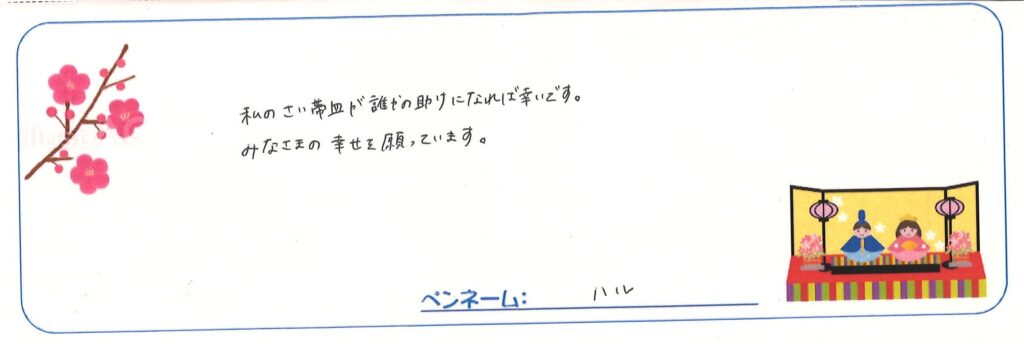 私のさい帯血が誰かの助けになれば幸いです。
みなさまの幸せを願っています。
ペンネーム: ハル